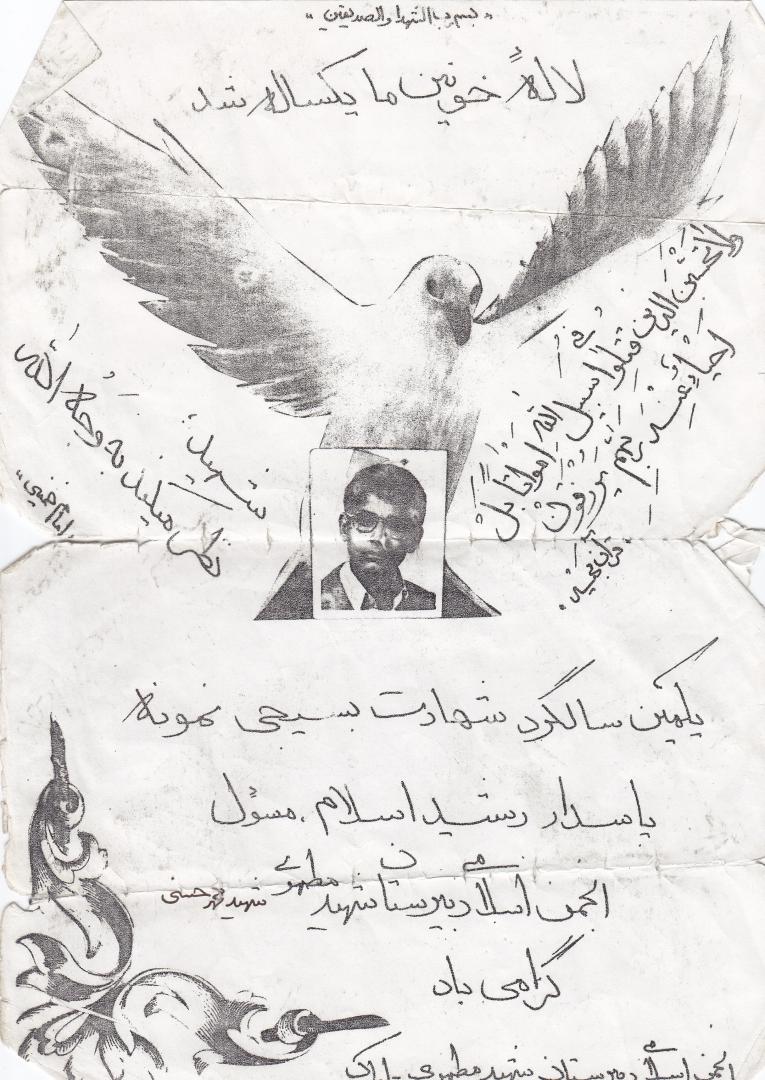 "بسم رب الشهداء والصدیقین"
لالهٔ خونین ما یکساله شد
لاتحسبن الذین قتلوا فی سبیل الله امواتا بل
احیاء عند ربهم یرزقون
"قرآن مجید"
شهید:
نظر میکند به وجه الله
"امام خمینی"
یکمین سالگرد شهادت بسیجی نمونه
پاسدار رشید اسلام، مسؤل
انجمن اسلامی دبیرستان شهید مطهری شهید
گرامی باد
انجمن اسلامی دبیرستان شهید مطهری - اراک